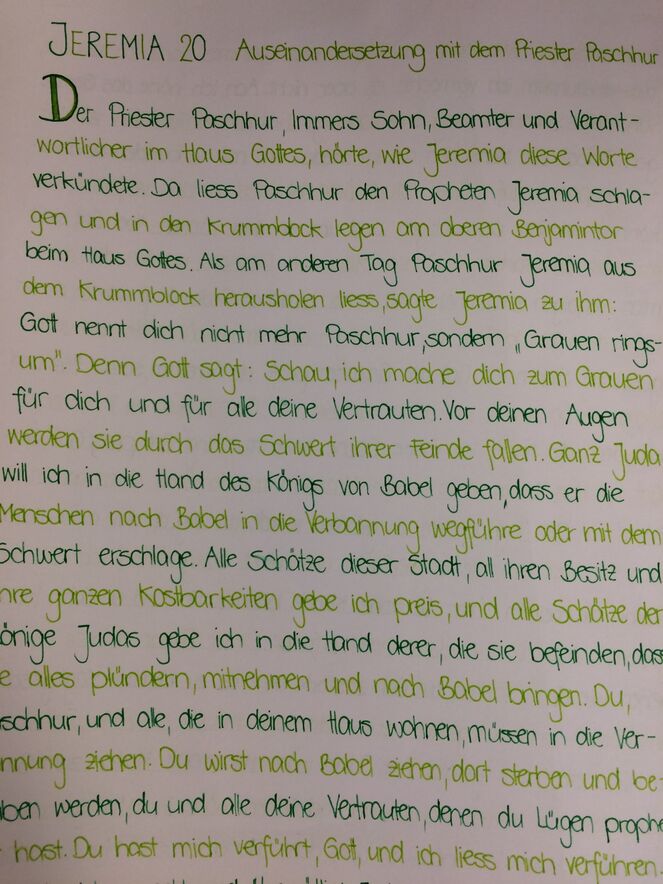 JEREMIA 20 Auseinandersetzung mit dem Priester Paschhur
Der Priester Paschhur, Immers Sohn, Beamter und Verant-
wortlicher im Haus Gottes, hörte, wie Jeremia diese Worte
verkündete. Da liess Paschhur den Propheten Jeremia schla-
gen und in den Krummblock legen am oberen Benjamintor
beim Haus Gottes. Als am anderen Tag Paschhur Jeremia aus
dem Krummblock herausholen liess, sagte Jeremia zu ihm:
Gott nennt dich nicht mehr Paschhur, sondern „Grauen rings-
um". Denn Gott sagt: Schau, ich mache dich zum Grauen
für dich und für alle deine Vertrauten. Vor deinen Augen
werden sie durch das Schwert ihrer Feinde fallen. Ganz Juda
will ich in die Hand des Königs von Babel geben, dass er die
Menschen nach Babel in die Verbannung wegführe oder mit dem
Schwert erschlage. Alle Schätze dieser Stadt, all ihren Besitz und
hre ganzen Kostbarkeiten gebe ich preis, und alle Schätze der
önige Judas gebe ich in die Hand derer, die sie befeinden, dass
e alles plündern, mitnehmen und nach Babel bringen. Du,
schhur, und alle, die in deinem Haus wohnen, müssen in die Ver-
nnung ziehen. Du wirst nach Babel ziehen, dort sterben und be-
ben werden, du und alle deine Vertrauten, denen du Lügen prophe
hast. Du hast mich verführt, Gott, und ich liess mich verführen.